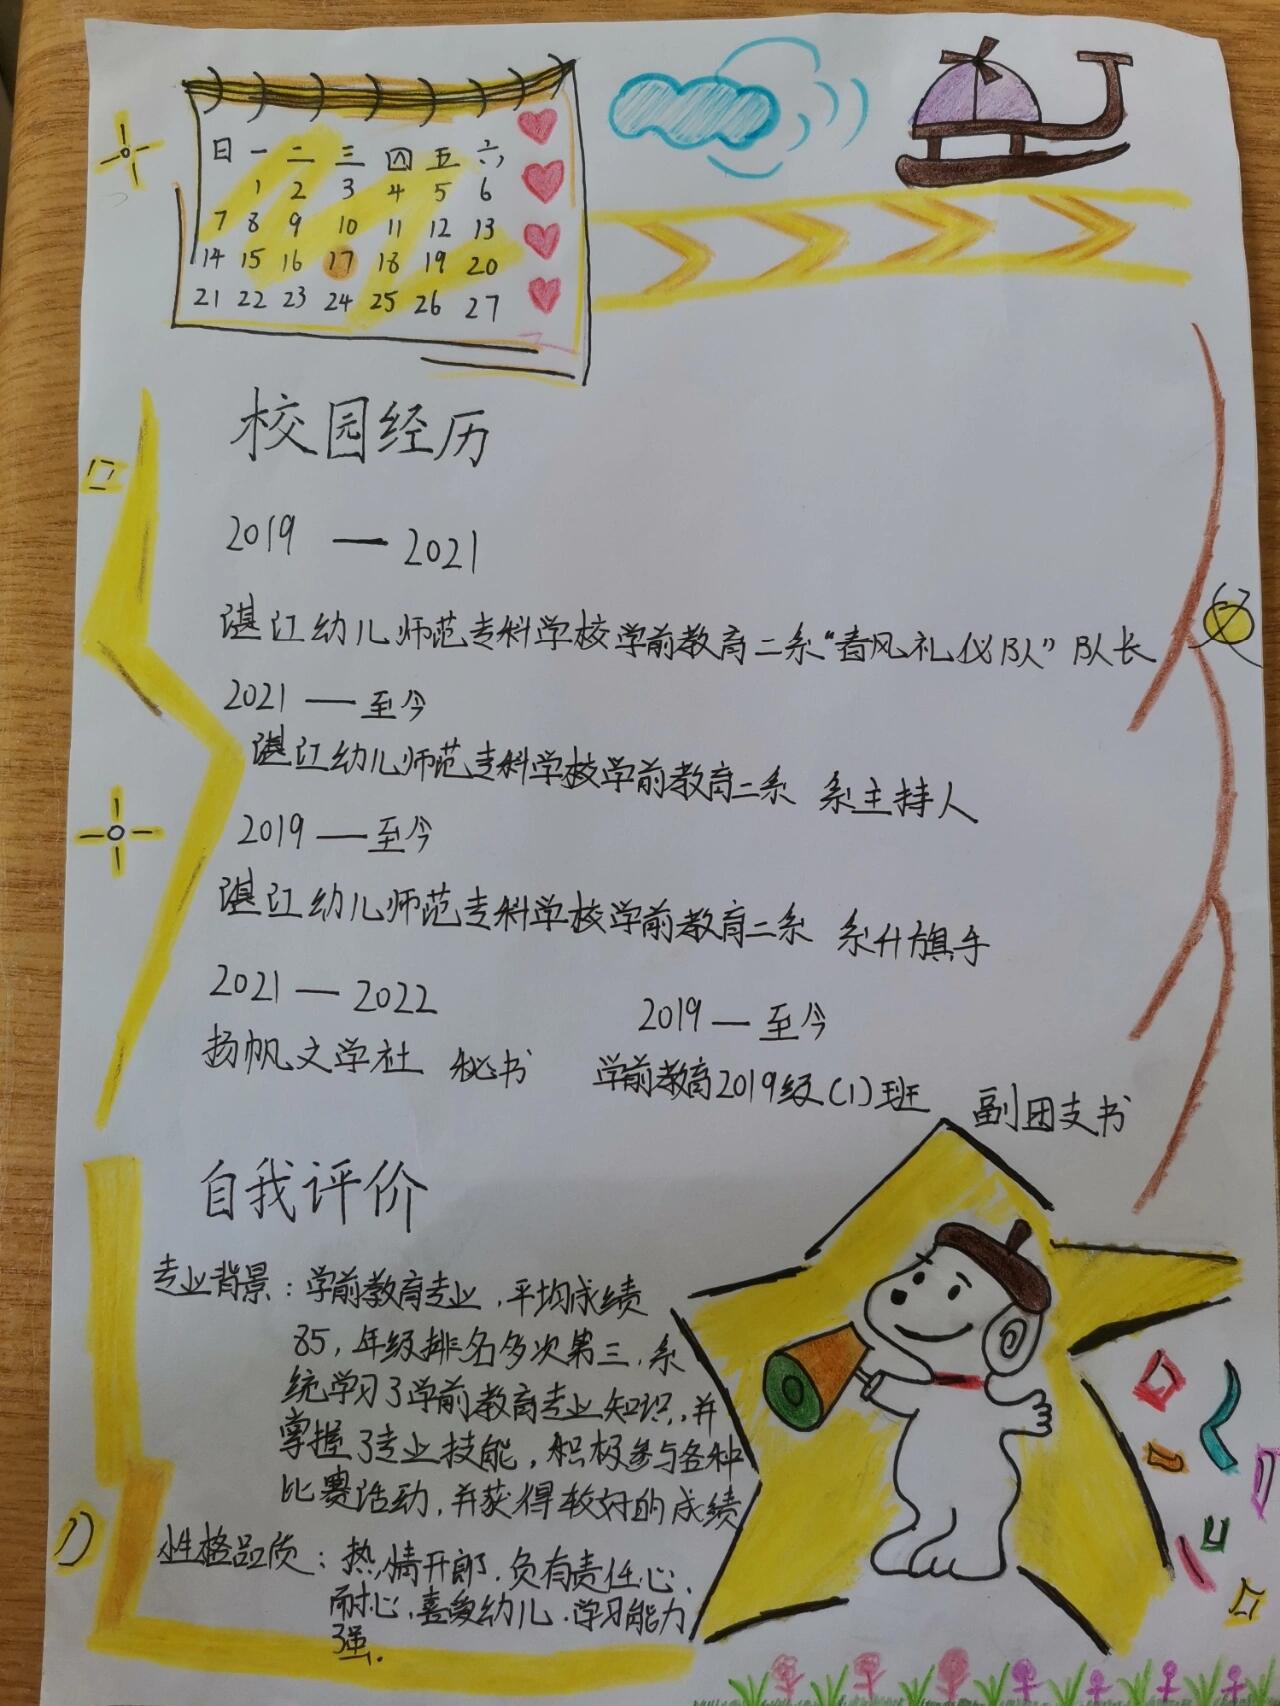 日 一 二 三 四 五 六
1 2 3 4 5 6
7 8 9 10 11 12 13
14 15 16 17 18 19 20
21 22 23 24 25 26 27
校园经历
2019 — 2021
湛江幼儿师范专科学校学前教育二系“春风礼仪队”队长
2021 — 至今
湛江幼儿师范专科学校学前教育二系 系主持人
2019 — 至今
湛江幼儿师范专科学校学前教育二系 系升旗手
2021 — 2022
扬帆文学社 秘书
2019 — 至今
学前教育2019级(1)班 副团支书
自我评价
专业背景：学前教育专业，平均成绩
85，年级排名多次第三，系
统学习了学前教育专业知识，并
掌握了专业技能，积极参与各种
比赛活动，并获得较好的成绩
性格品质：热情开朗，负有责任心，
耐心，喜爱幼儿，学习能力
强.